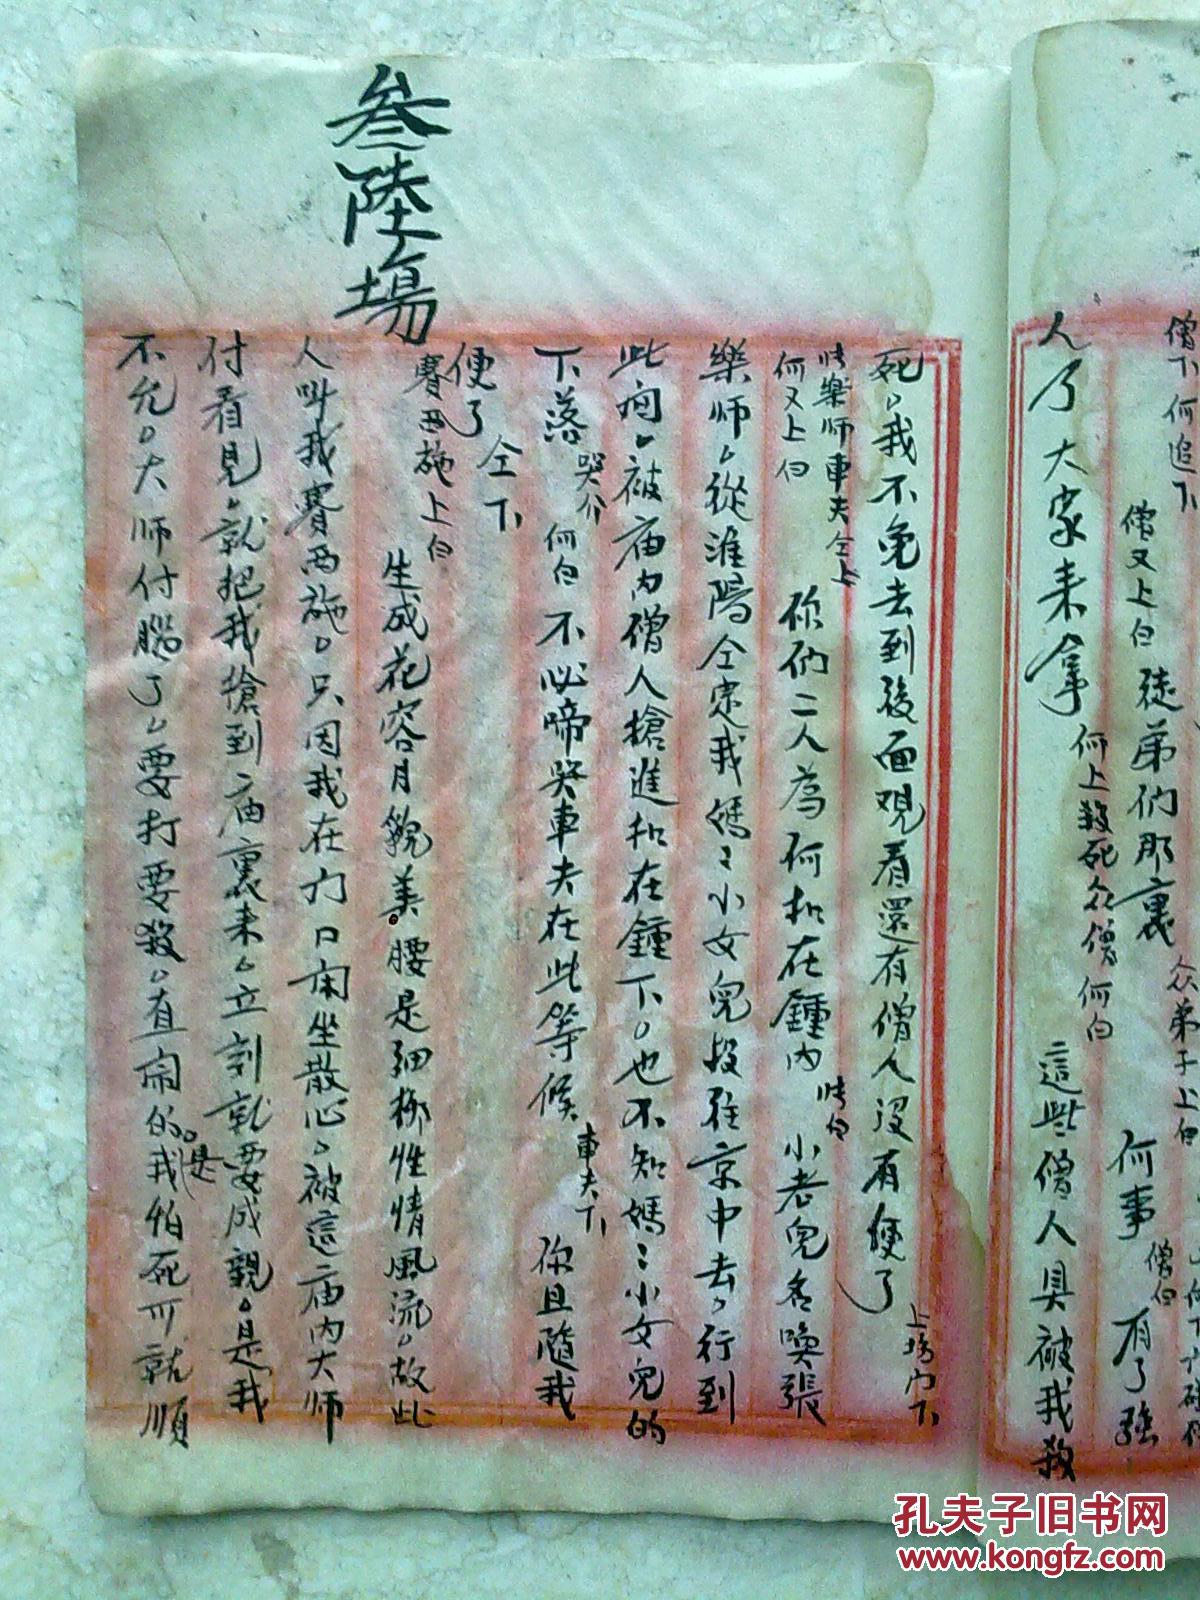 僧下何追下
众弟子上白
僧又上白 徒弟們那裏 何事 僧白 有了強
人了大家来拿 何上殺死众僧何白 這些僧人具被我殺
死，我不免去到後面观看還有僧人没有便了 上場门下
張樂师車夫仝上
何又上白 你們二人為何扣在鐘内 張白 小老兒名喚張
樂师，從淮陽仝定我媽〻小女兒投往京中去，行到
此间，被庙内僧人搶進扣在鐘下。也不知媽〻小女兒的
下落 哭介 何白 不必啼哭車夫在此等候 車夫下 你且隨我
便了 仝下
叁陸場
賽西施上白 生成花容月貌美。腰是细柳性情風流。故此
人叫我賽西施。只因我在门口闲坐散心，被這庙内大师
付看見，就把我搶到庙裏来，立刻就要成親，是我
不允。大师付腦了，要打要殺，直闹的。是我怕死可就順
孔夫子旧书网
www.kongfz.com